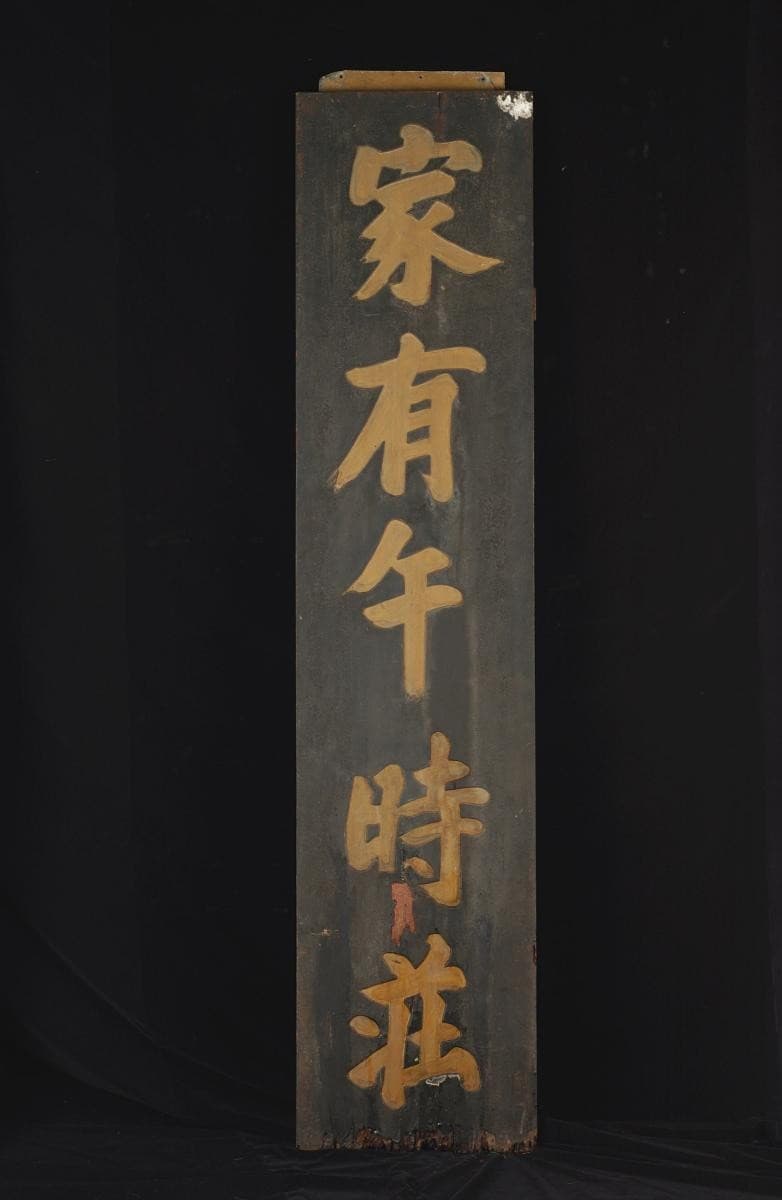 家有午時莊